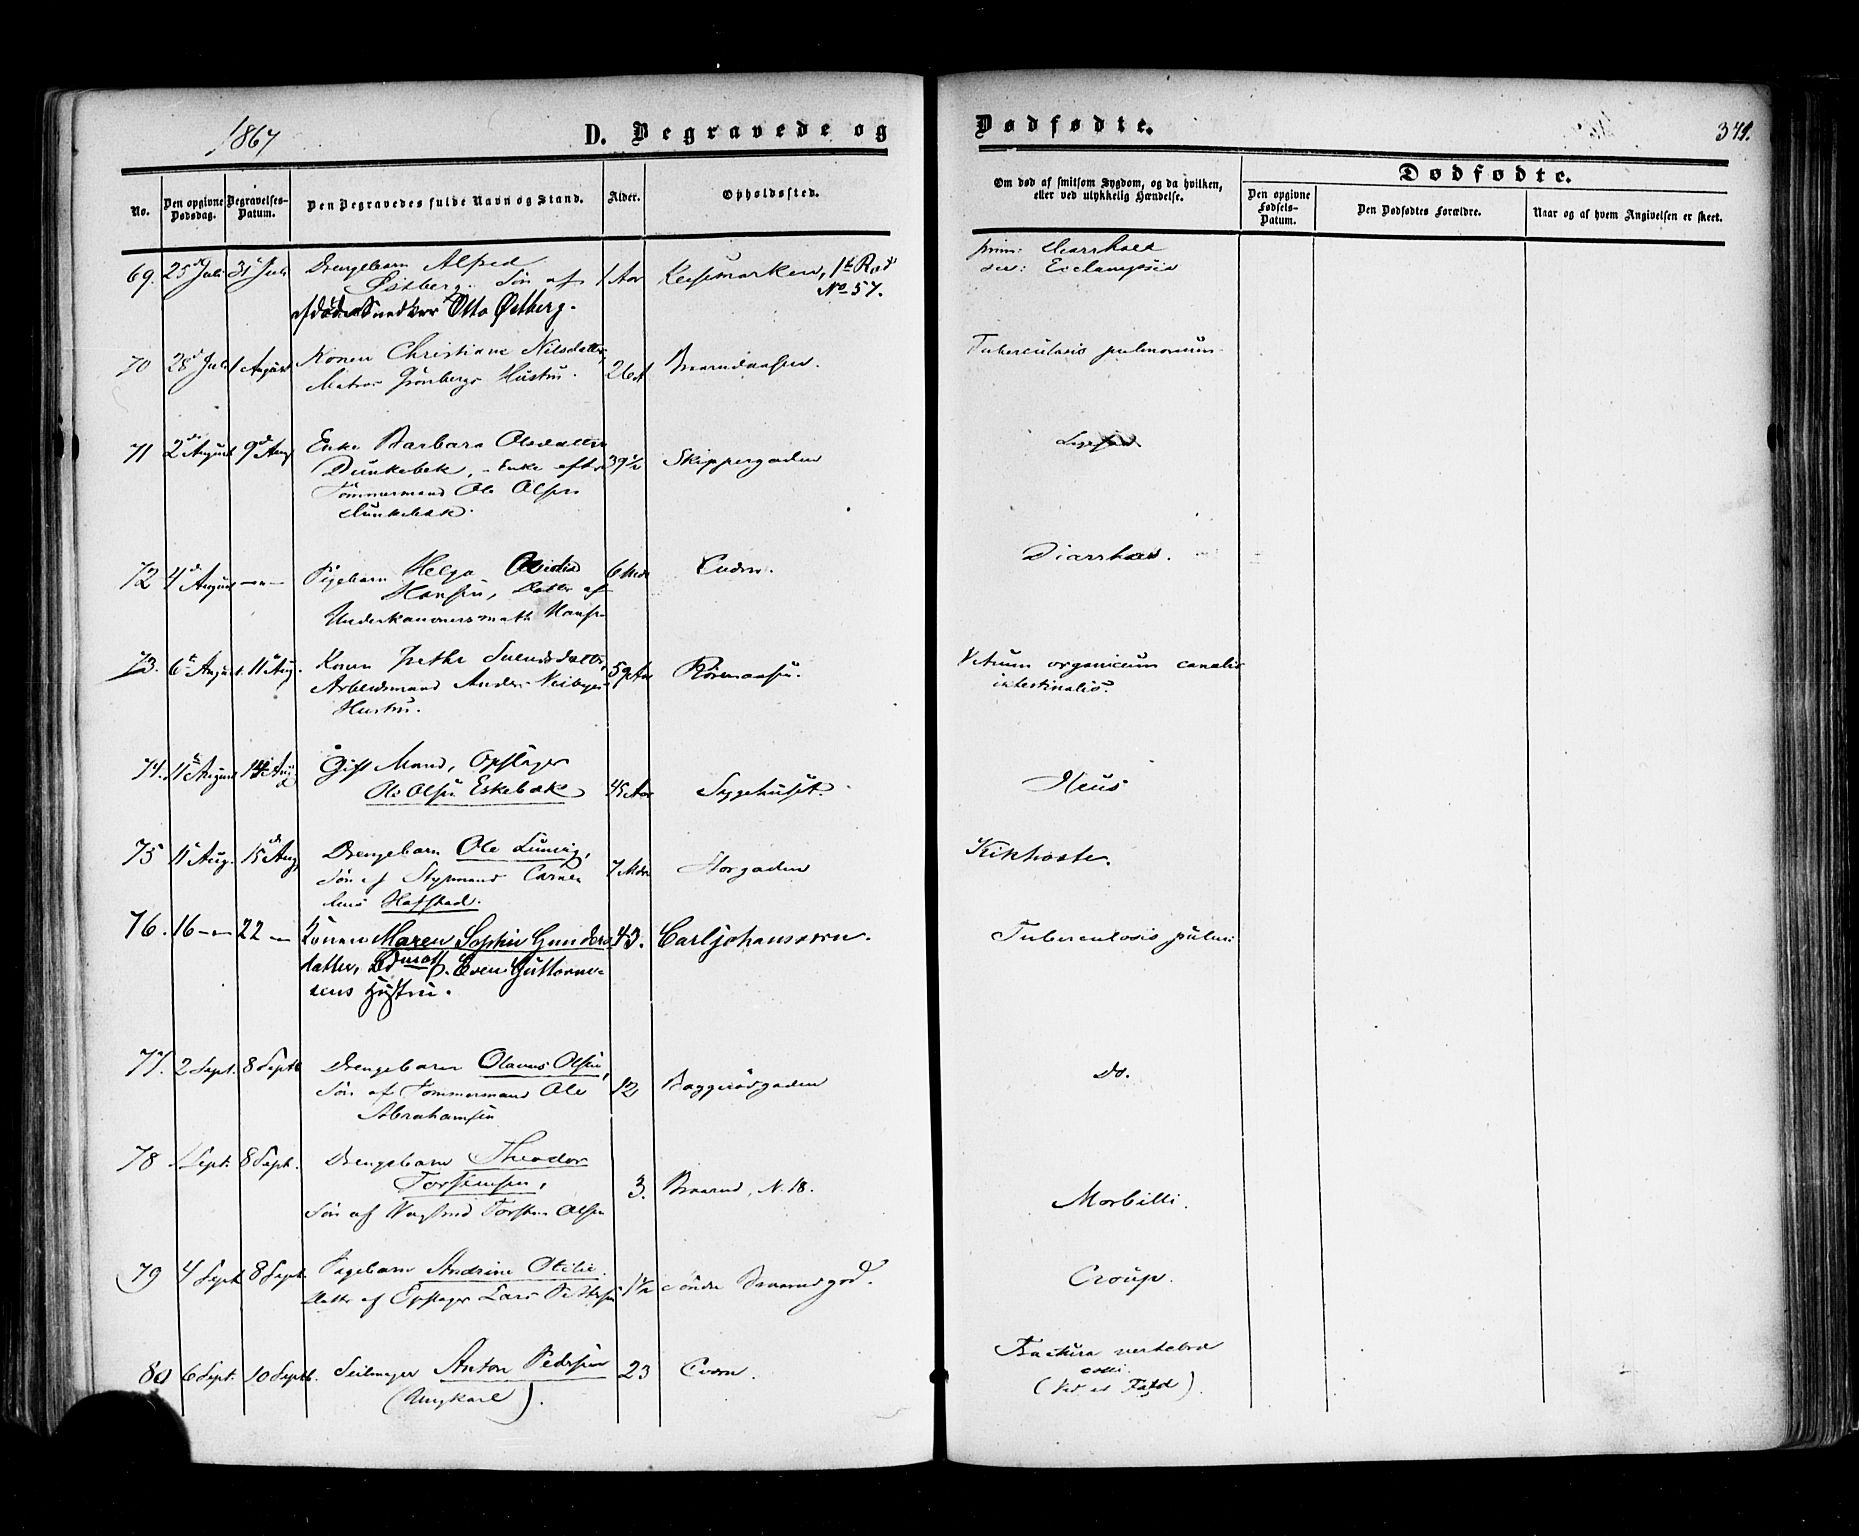 1867
D. Begravede og
Dødfødte.
342.
No.
Den opgivne Dødsdag.
Begravelses-Datum.
Den Begravedes fulde Navn og Stand.
Alder.
Opholdssted.
Om død af smitsom Sygdom, og da hvilken, eller ved ulykkelig Hændelse.
Dødfødte.
Den opgivne Fødsels-Datum.
Den Dødfødtes Forældre.
Naar og af hvem Angivelsen er skeet.
69. 25 Juli 31 Juli Drengebarn Alfred 1 Aar
Østberg. Søn af
afdøde Snedker Otto Østberg.
No 57.
Diarrhoea
Eclampsia
70 28 Juli 1 August Konen Christiane Nilsdatter,
Matros Grønbergs Hustru. 26
Tuberculosis pulmonum
71 2 August 9 Aug Enke Barbara Olsdatter
Dunkebek, Enke efter 39½ Skippergaden
Tømmermand Ole Olsen
Dunkebæk.
72 4 August Pigebarn Helga
Hansen, Datter af
Underkanonersmath Hansen
Diarrhoea.
73. 6 August 11 Aug. Konen Grethe Svendsdatter, 59 Aar
Arbeidsmand Anders
Hustru.
Vitium organicum canalis
intestinalis.
74. 11 August 14 Aug Gift Mand, Opslager
Ole Olsen Eskebæk 45 Aar Sygehuset.
Ileus
75 11 Aug. 15 Aug Drengebarn Ole Ludvig,
Søn af Styrmand Corne 7 Mdr Storgaden
lius Hafstad.
Kikhoste.
76. 16 22 Konen Maren Sophie Gunders 43. Carljohansværn.
datter, Even Guttorm
sens Hustru.
Tuberculosis pulm:
77. 2 Sept. 8 Septb Drengebarn Olavus Olsen,
Søn af Tømmermand Ole 12 Baggerødgaden
Abrahamsen
Do.
78 Sept. 8 Sept. Drengebarn Theodor
Torstensen,
Søn af Torsten Olsen 3. Braarud, N. 18.
Morbilli.
79 4 Sept 8 Sept. Pigebarn Andrine Otilie.
Datter af Opslager Lars Pettersen 1½ Søndre Braarudgd.
Croup.
80 6 Sept. 10 Septb. Seilmager Anton Pedersen 23
(Ungkarl).
Fractura vertebra
colli
(Ved et Fald).